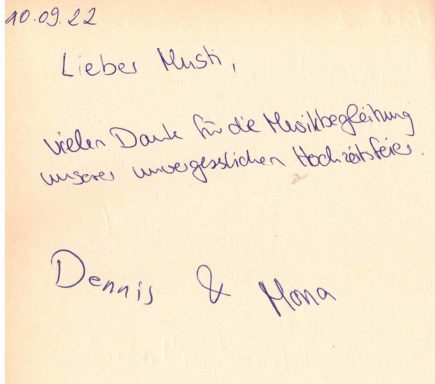 10.09.22
Lieber Musti,
vielen Dank für die Musikbegleitung
unserer unvergesslichen Hochzeitsfeier.
Dennis & Mona